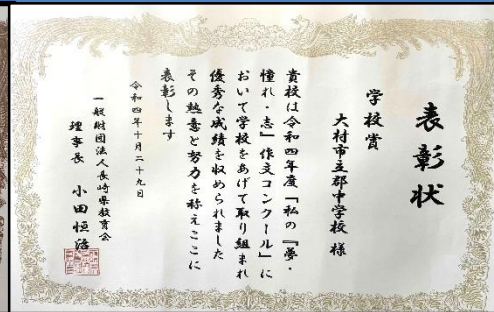 表彰状
学校賞
大村市立郡中学校 様
貴校は令和四年度「私の『夢・
憧れ・志』作文コンクール」に
おいて学校をあげて取り組まれ
優秀な成績を収められました
その熱意と努力を称えここに
表彰します
令和四年十月二十九日
一般財団法人長崎県教育会
理事長 小田恒治